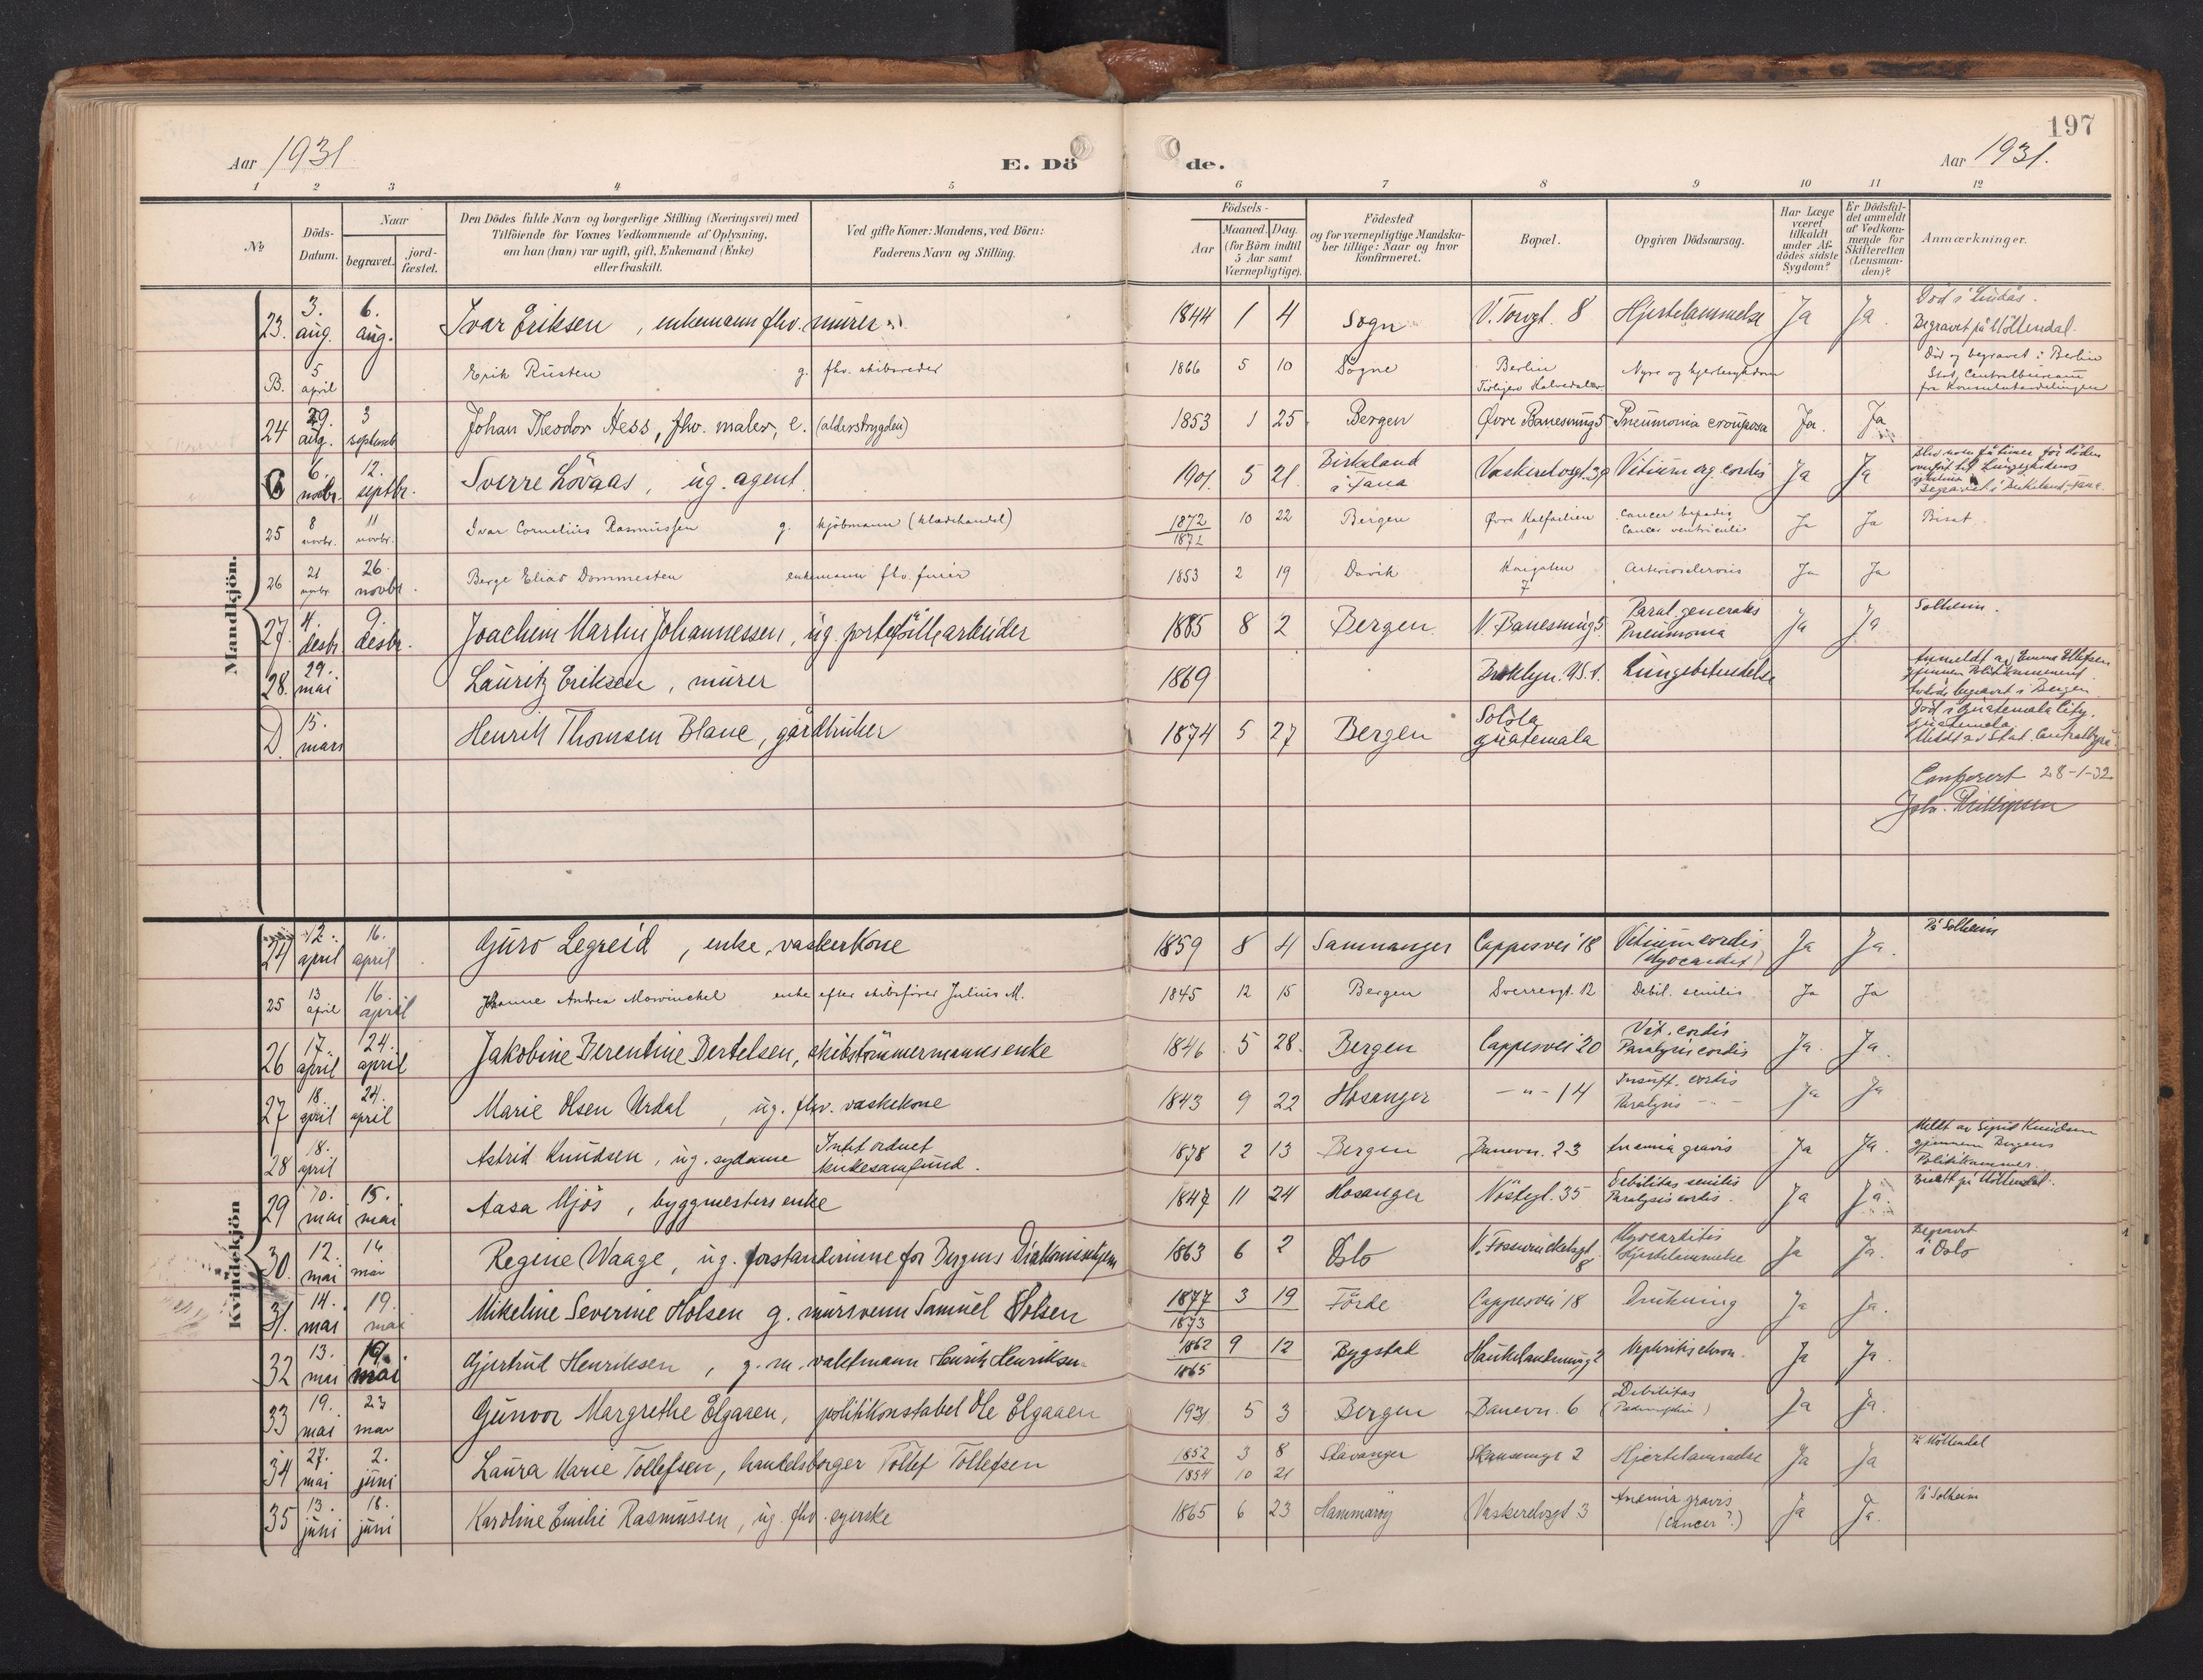 197
Aar 1931
E. Dö
de.
Aar 1931.
1 2 3 4 5 6 7 8 9 10 11 12
No
Döds-
Datum.
Naar
begravet.
jord-
fæstet.
Den Dödes fulde Navn og borgerlige Stilling (Næringsvei) med
Tilföiende for Voxnes Vedkommende af Oplysning,
om han (hun) var ugift, gift, Enkemand (Enke)
eller fraskilt.
Ved gifte Koner: Mandens, ved Börn:
Faderens Navn og Stilling.
Födsels-
Aar
Maaned. Dag.
(for Börn indtil
5 Aar samt
Værnepligtige).
Födested
og for værnepligtige Mandska-
ber tillige: Naar og hvor
konfirmeret.
Bopæl.
Opgiven Dödsaarsag.
Har Læge
været
tilkaldt
under Af-
dödes sidste
Sygdom?
Er Dödsfal-
det anmeldt
af Vedkom-
mende for
Skifteretten
(Lensman-
den)?
Anmærkninger.
Mandkjön.
23. 3. aug. 6. aug. Ivar Eriksen, enkemann fhv. murer. 1844 1 4 Sogn V. Torvgt. 8 Hjertelammelse Ja Ja.
Död i Lindås.
Begravet på Möllendal.
B. 5 april Erik Rusten g. fhv. skibsreder 1866 5 10 Sögne Berlin
Nyre og hjertesykdom
Död og begravet i Berlin
Stat. Centralbureau
fra Konsulatavdelingen
24 29. aug. 3 septemb Johan Theodor Hess, fhv. maler, e. (alderstrygden) 1853 1 25 Bergen Øvre Banesmug 5 Pneumonia crouposa Ja. Ja
C 6. novbr. 12. septbr. Sverre Lövaas, ug. agent. 1901 5 21. Birkeland
i Fana Vaskerelvsgt. 39 Vitium org. cordis Ja Ja
Begravet i Birkeland, Fana.
25 8 novbr. 11 novbr. Ivar Cornelius Rasmussen g. kjöbmann (klædehandel) 1872
1871 10 22 Bergen Øvre Kalfarlien Cancer hepatis
Cancer ventriculi Ja Ja Bisat.
26 21 novbr. 26. novbr. Berge Elias Dommesten enkemann fhv. furér 1853 2 19 Davik Kongaten
7 Arteriosclerosis Ja Ja
27. 4. desbr 9. desbr. Joachim Martin Johannessen, ug. portefölljearbeider 1885 8 2 Bergen N. Banesmug 5 Paral. generalis
Pneumonia Ja Ja Solheim.
28. 29. mai Lauritz Eriksen, murer 1869 Brooklyn. U.S.A. Lungebetendelse
Anmeldt av Emma Ellefsen
gjennem Politikammeret
begravet i Bergen
D. 15. mars Henrik Thomsen Blanc, gårdbruker 1874 5 27 Bergen Solola
Guatemala
Död i Guatemala City,
Guatemala.
Meldt av Stat. Centralbyrå.
Conferert 28-1-32
Kvindekjön
24 12. april 16. april Guro Legreid, enke, vaskerkone 1859 8 4 Samnanger Cappesvei 18 Vitium cordis Ja Ja. På Solheim
25 13 april 16. april Johanne Andrea Mowinckel enke efter skibsförer Julius M. 1845 12 15 Bergen Sverresgt. 12 Debil. senilis Ja Ja
26 17 april 24. april Jakobine Berentine Bertelsen, skibstömmermanns enke 1846 5 28. Bergen Cappesvei 20 Vit. cordis
Paralysis cordis Ja. Ja.
27 18. april 24. april Marie Olsen Urdal, ug. fhv. vaskekone 1843 9 22 Hosanger -"- 14 Insuff. cordis
Paralysis -"- Ja Ja
28 18. april Astrid Knudsen, ug. sydame Intet ordnet
kirkesamfund. 1878 2 13 Bergen Banevn. 23 Anemia gravis Ja Ja.
Meldt av Sigrid Knudsen
gjennem Bergens
Politikammer.
29 10. mai 15. mai Aasa Mjös, byggmesters enke 1847 11 24 Hosanger Nöstegt. 35 Debilitas senilis
Paralysis cordis. Ja Ja. Bisatt på Möllendal.
30. 12. mai 16 mai Regine Waage, ug. forstanderinne for Bergens Diakonissehjem 1863 6 2 Oslo V. Fosswinckelsgt.
8 Myocarditis
Hjertelammelse Ja Ja. Begravet
i Oslo
31. 14. mai 19. mai Mikeline Severine Holsen g. mursvenn Samuel Holsen 1877
1873 3 19 Förde Cappesvei 18 Drukning Ja Ja.
32 13. mai 19. mai Gjertrud Henriksen, g. m. vaktmann Henrik Henriksen 1862
1865 9 12 Bygstad Haukelandsmug 2 Nephritis chron. Ja Ja.
33 19. mai 23 mai Gunvor Margrethe Elgaaen, politikonstabel Ole Elgaaen 1931 5 3 Bergen Banevn. 6 Debilitas Ja Ja.
34 27. mai 2. juni Laura Marie Tollefsen, handelsborger Tollef Tollefsen 1852
1854 3 8
10 21 Stavanger Skansemgt 2 Hjertelammelse Ja Ja På Möllendal
35 13. juni 18. juni Karoline Emilie Rasmussen, ug. fhv. syerske 1865 6 23 Hammaröy Vaskerelvsgt 3 Anemia gravis
(cancer?) Ja Ja. På Solheim